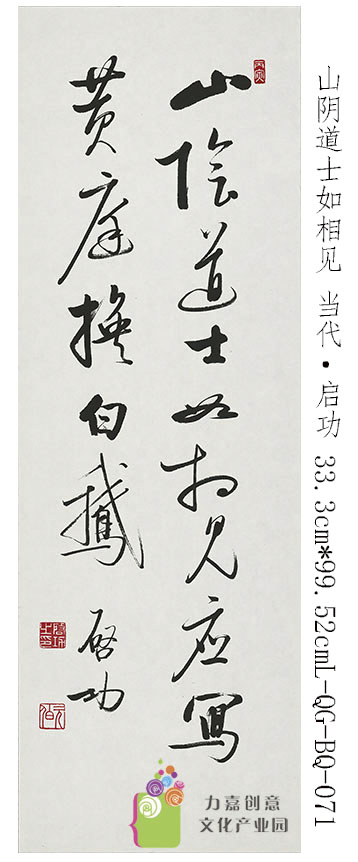 山陰道士如相見應寫
黃庭換白鵝
啓功
山阴道士如相见 当代·启功 33.3cm*99.52cmL-QG-BQ-071
力嘉创意
文化产业园